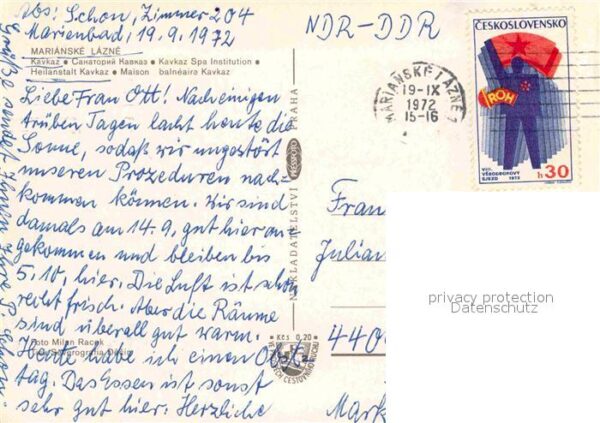 Abs! Schon, Zimmer 204
Marienbad, 19.9.1972
NDR-DDR
MARIÁNSKÉ LÁZNĚ
Kavkaz • Санаторий Кавказ • Kavkaz Spa Institution •
Heilanstalt Kavkaz • Maison balnéaire Kavkaz
Liebe Frau Ott! Nach einigen
trüben Tagen lacht heute die
Sonne, sodaß wir ungestört
unseren Prozeduren nach-
kommen können. Wir sind
damals am 14.9. gut hier an-
gekommen und bleiben bis
5.10. hier. Die Luft ist schon
recht frisch. Aber die Räume
sind überall gut warm.
Heute habe ich einen Obst-
tag. Das Essen ist sonst
sehr gut hier. Herzliche
Grüße sendet Ihnen Ihre
Foto Milan Racek
NAKLADATELSTVÍ PRESSFOTO PRAHA
Kčs 0,20
ČESKOSLOVENSKO
ROH
VIII.
VŠEODBOROVÝ
SJEZD 1972
h 30
MARIÁNSKÉ LÁZNĚ
19-IX
1972
15-16
Frau
Julian
440
Mark
privacy protection
Datenschutz